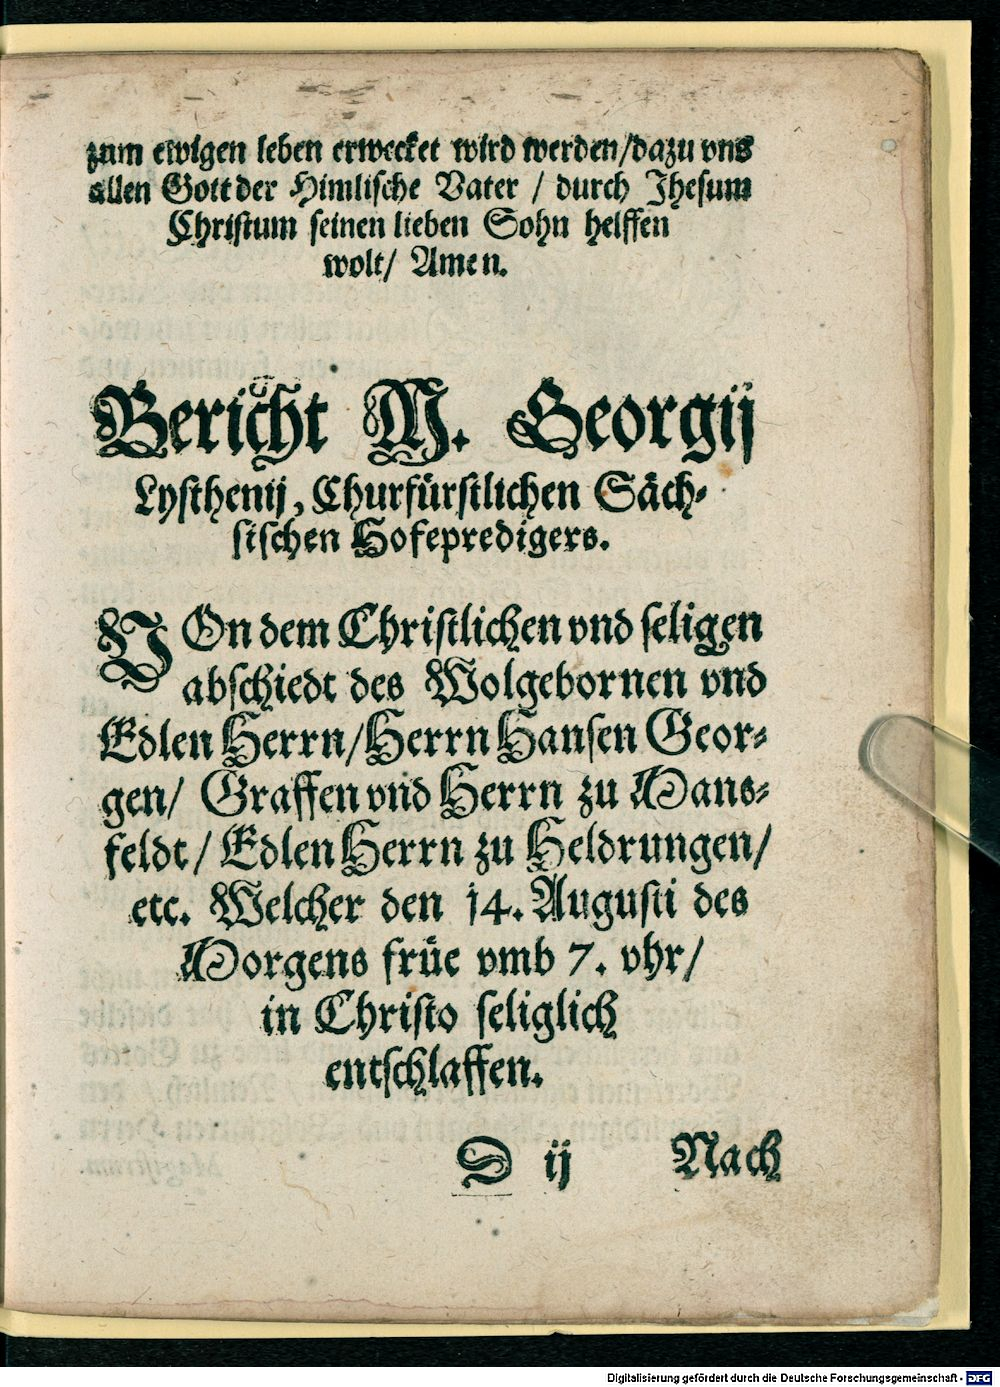 zum ewigen leben erwecket wird werden/dazu vns
allen Gott der Himlische Vater / durch Jhesum
Christum seinen lieben Sohn helffen
wolt/ Amen.
Bericht M. Georgij
Lysthenij, Churfürstlichen Säch-
sischen Hofepredigers.
VOn dem Christlichen vnd seligen
abschiedt des Wolgebornen vnd
Edlen Herrn/Herrn Hansen Geor-
gen/ Graffen vnd Herrn zu Mans-
feldt/ Edlen Herrn zu Heldrungen/
etc. Welcher den 14. Augusti des
Morgens früe vmb 7. vhr/
in Christo seliglich
entschlaffen.
D ij Nach
Digitalisierung gefördert durch die Deutsche Forschungsgemeinschaft - DFG